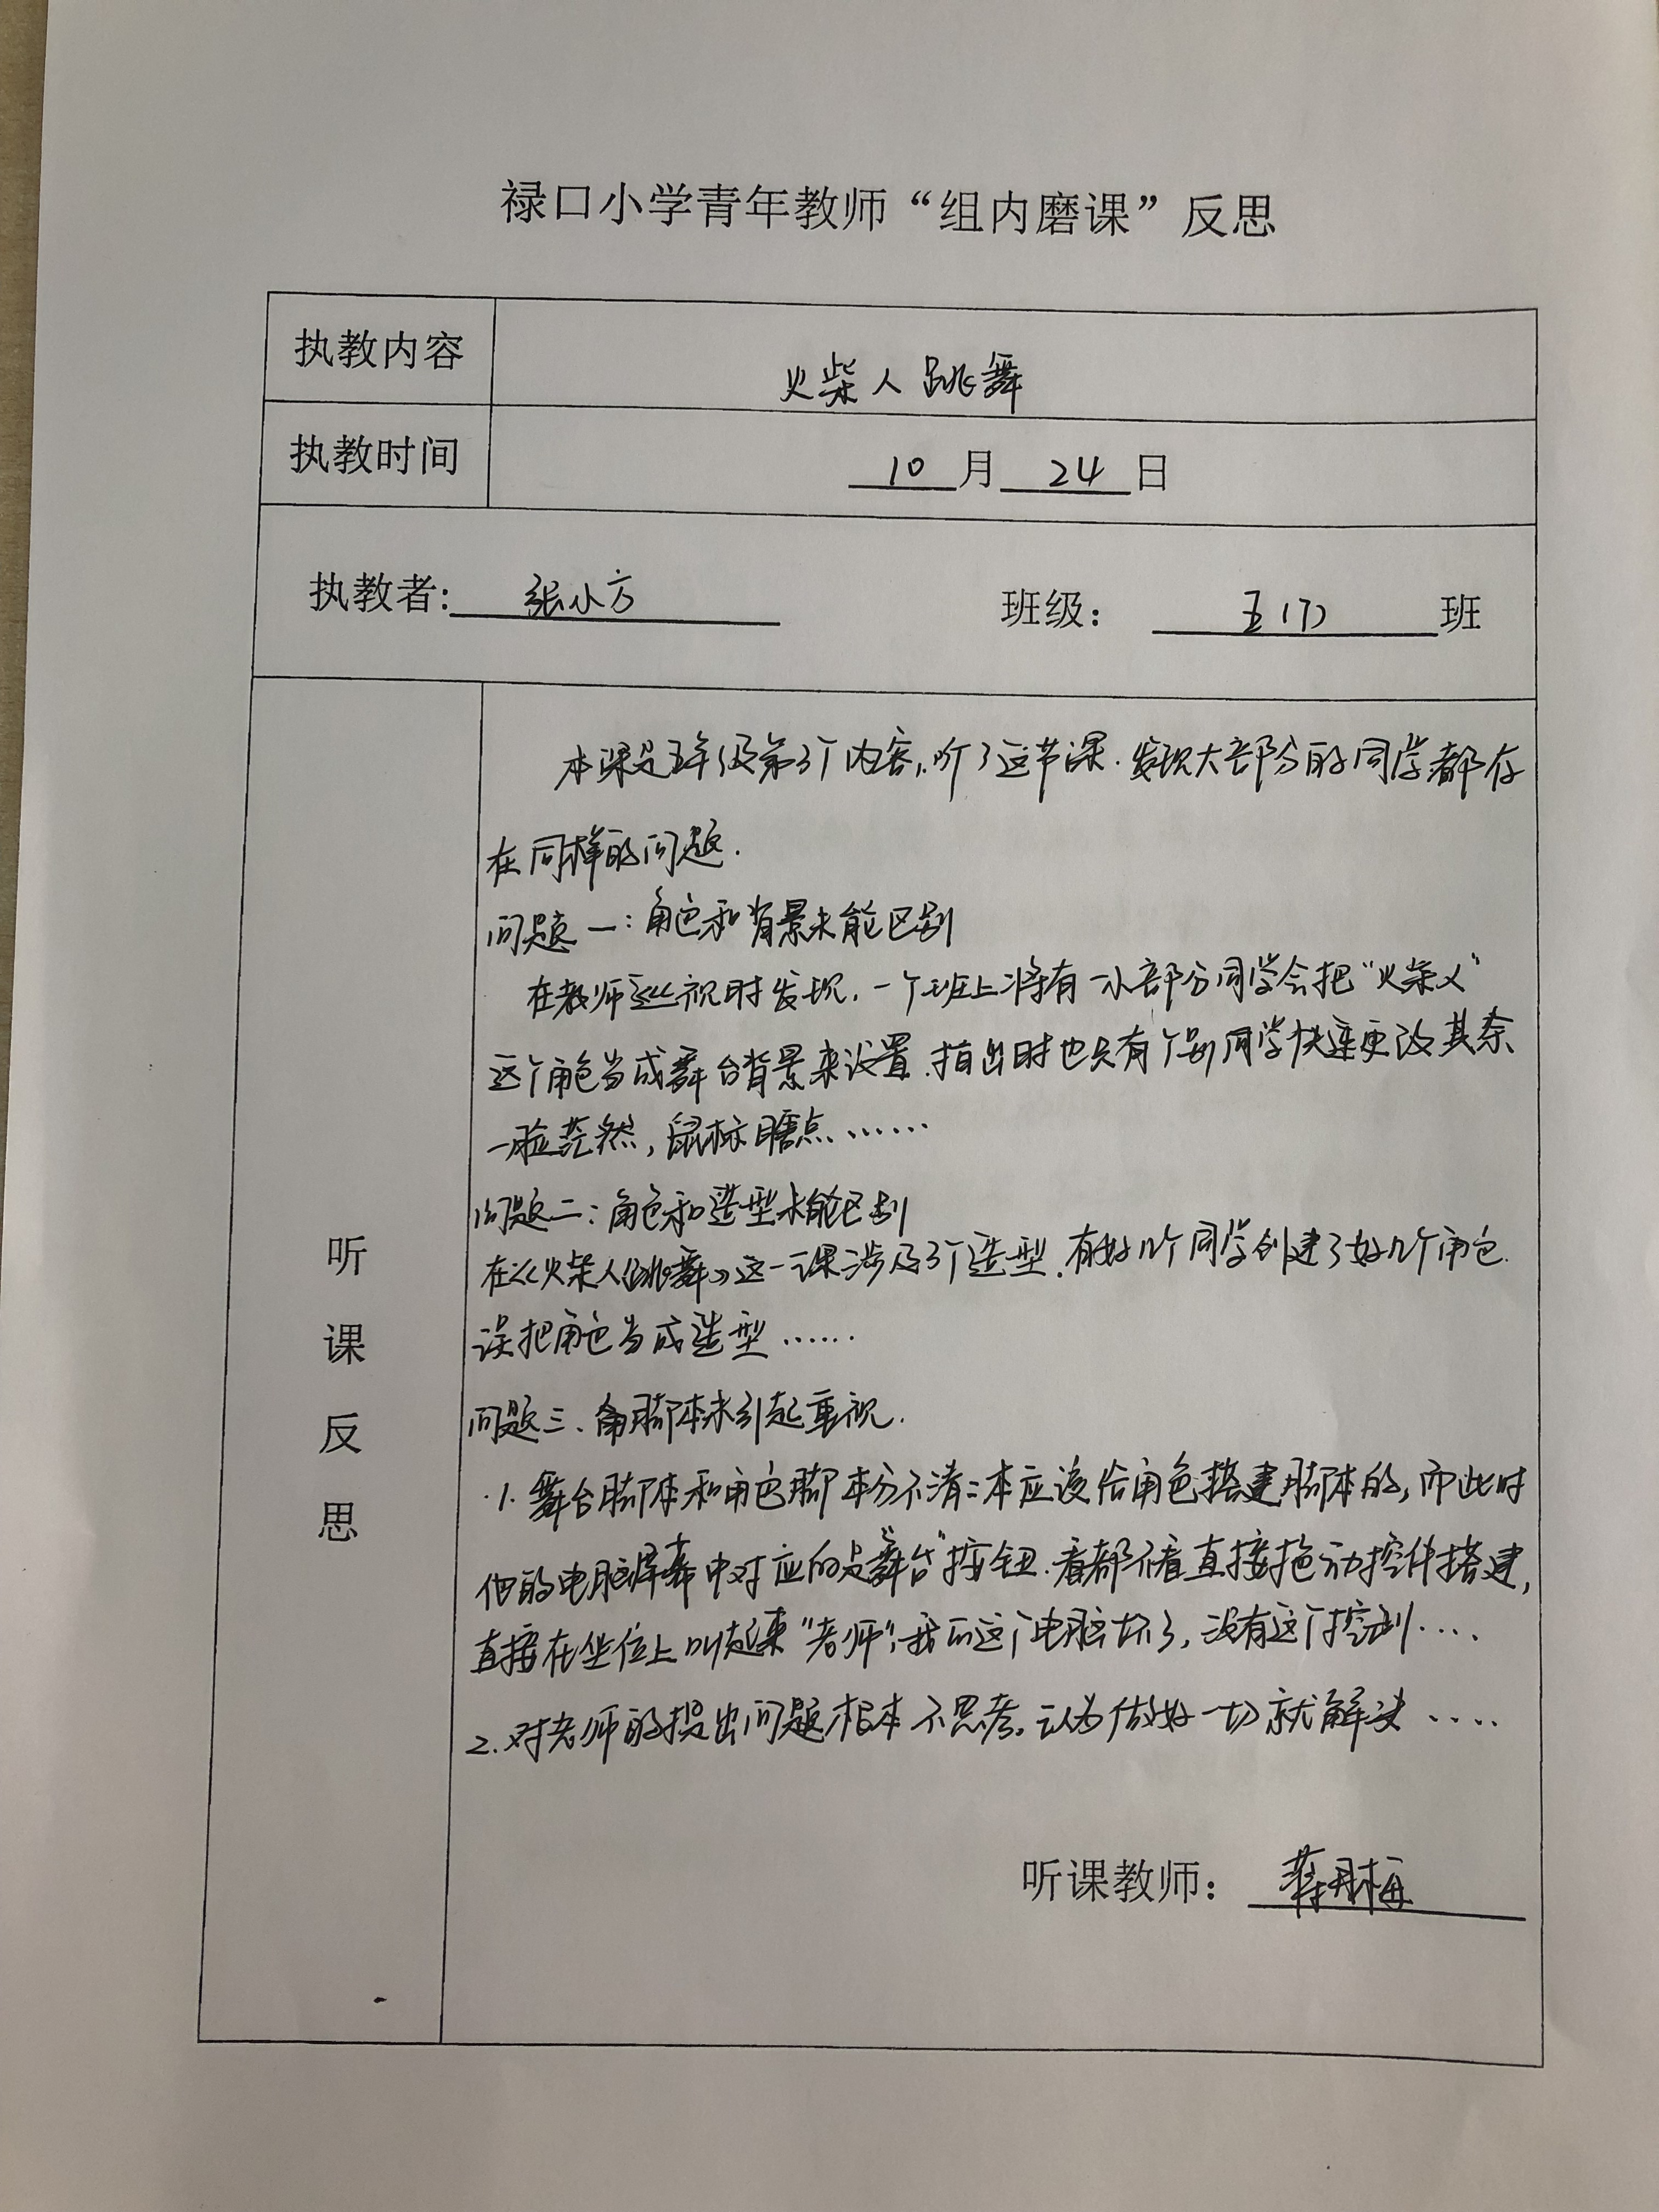 禄口小学青年教师“组内磨课”反思
执教内容
火柴人跳舞
执教时间
10月24日
执教者：张小方 班级：五（7）班
听课反思
本课是五年级第3个内容，听了这节课．发现大部分的同学都存
在同样的问题．
问题一：角色和背景未能区别
在教师巡视时发现，一个班上将有一小部分同学会把“火柴人”
这个角色当成舞台背景来设置．指出时也只有个别同学快速更改其余
一脸茫然，鼠标瞎点……
问题二：角色和造型未能区别
在《火柴人跳舞》这一课涉及3个造型．有好几个同学创建了好几个角色．
误把角色当成造型……
问题三、脚本未引起重视．
1. 舞台脚本和角色脚本分不清：本应该给角色搭建脚本的，而此时
他的电脑屏幕中对应的是“舞台”按钮．看都不看直接拖动控件搭建，
直接在坐位上叫起来“老师”，我的这个电脑坏了，没有这个控制....
2. 对老师的提出问题根本不思考．认为做好一切就解决....
听课教师：